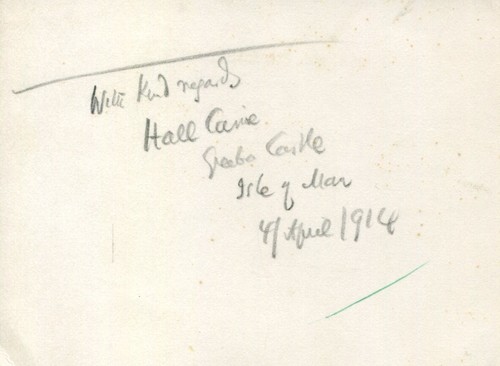 With kind regards
Hall Caine.
Greeba Castle
Isle of Man
4/April 1914